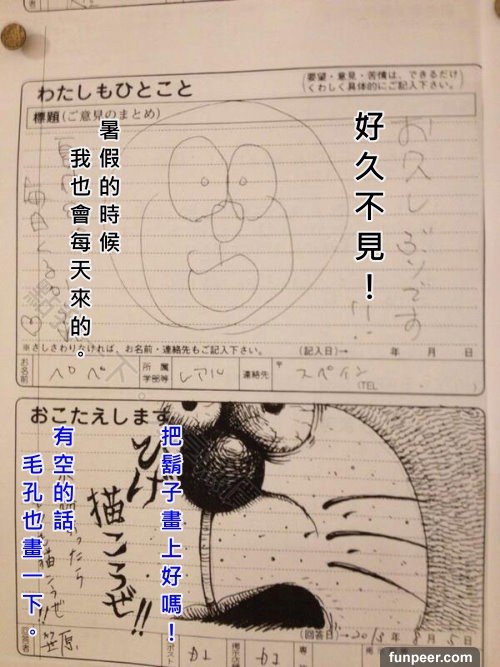 わたしもひとこと
(要望・意見・苦情は、できるだけ
くわしく具体的にご記入下さい。)
標題(ご意見のまとめ)
お久しぶりです!!
好久不見！
暑假的時候
我也會每天來的。
毎日くる。
※さしさわりなければ、お名前・連絡先もご記入下さい。
(記入日)→ 年 月 日
お名前 ペペ 所属学部等 レアル 連絡先 〒 スペイン (TEL
おこたえします
ひげ
描こうぜ!!
把鬍子畫上好嗎！
有空的話
毛孔也畫一下。
たら
も描こうぜ
笠原
(回答日)→2013年8月5日
回答者
funpeer.com